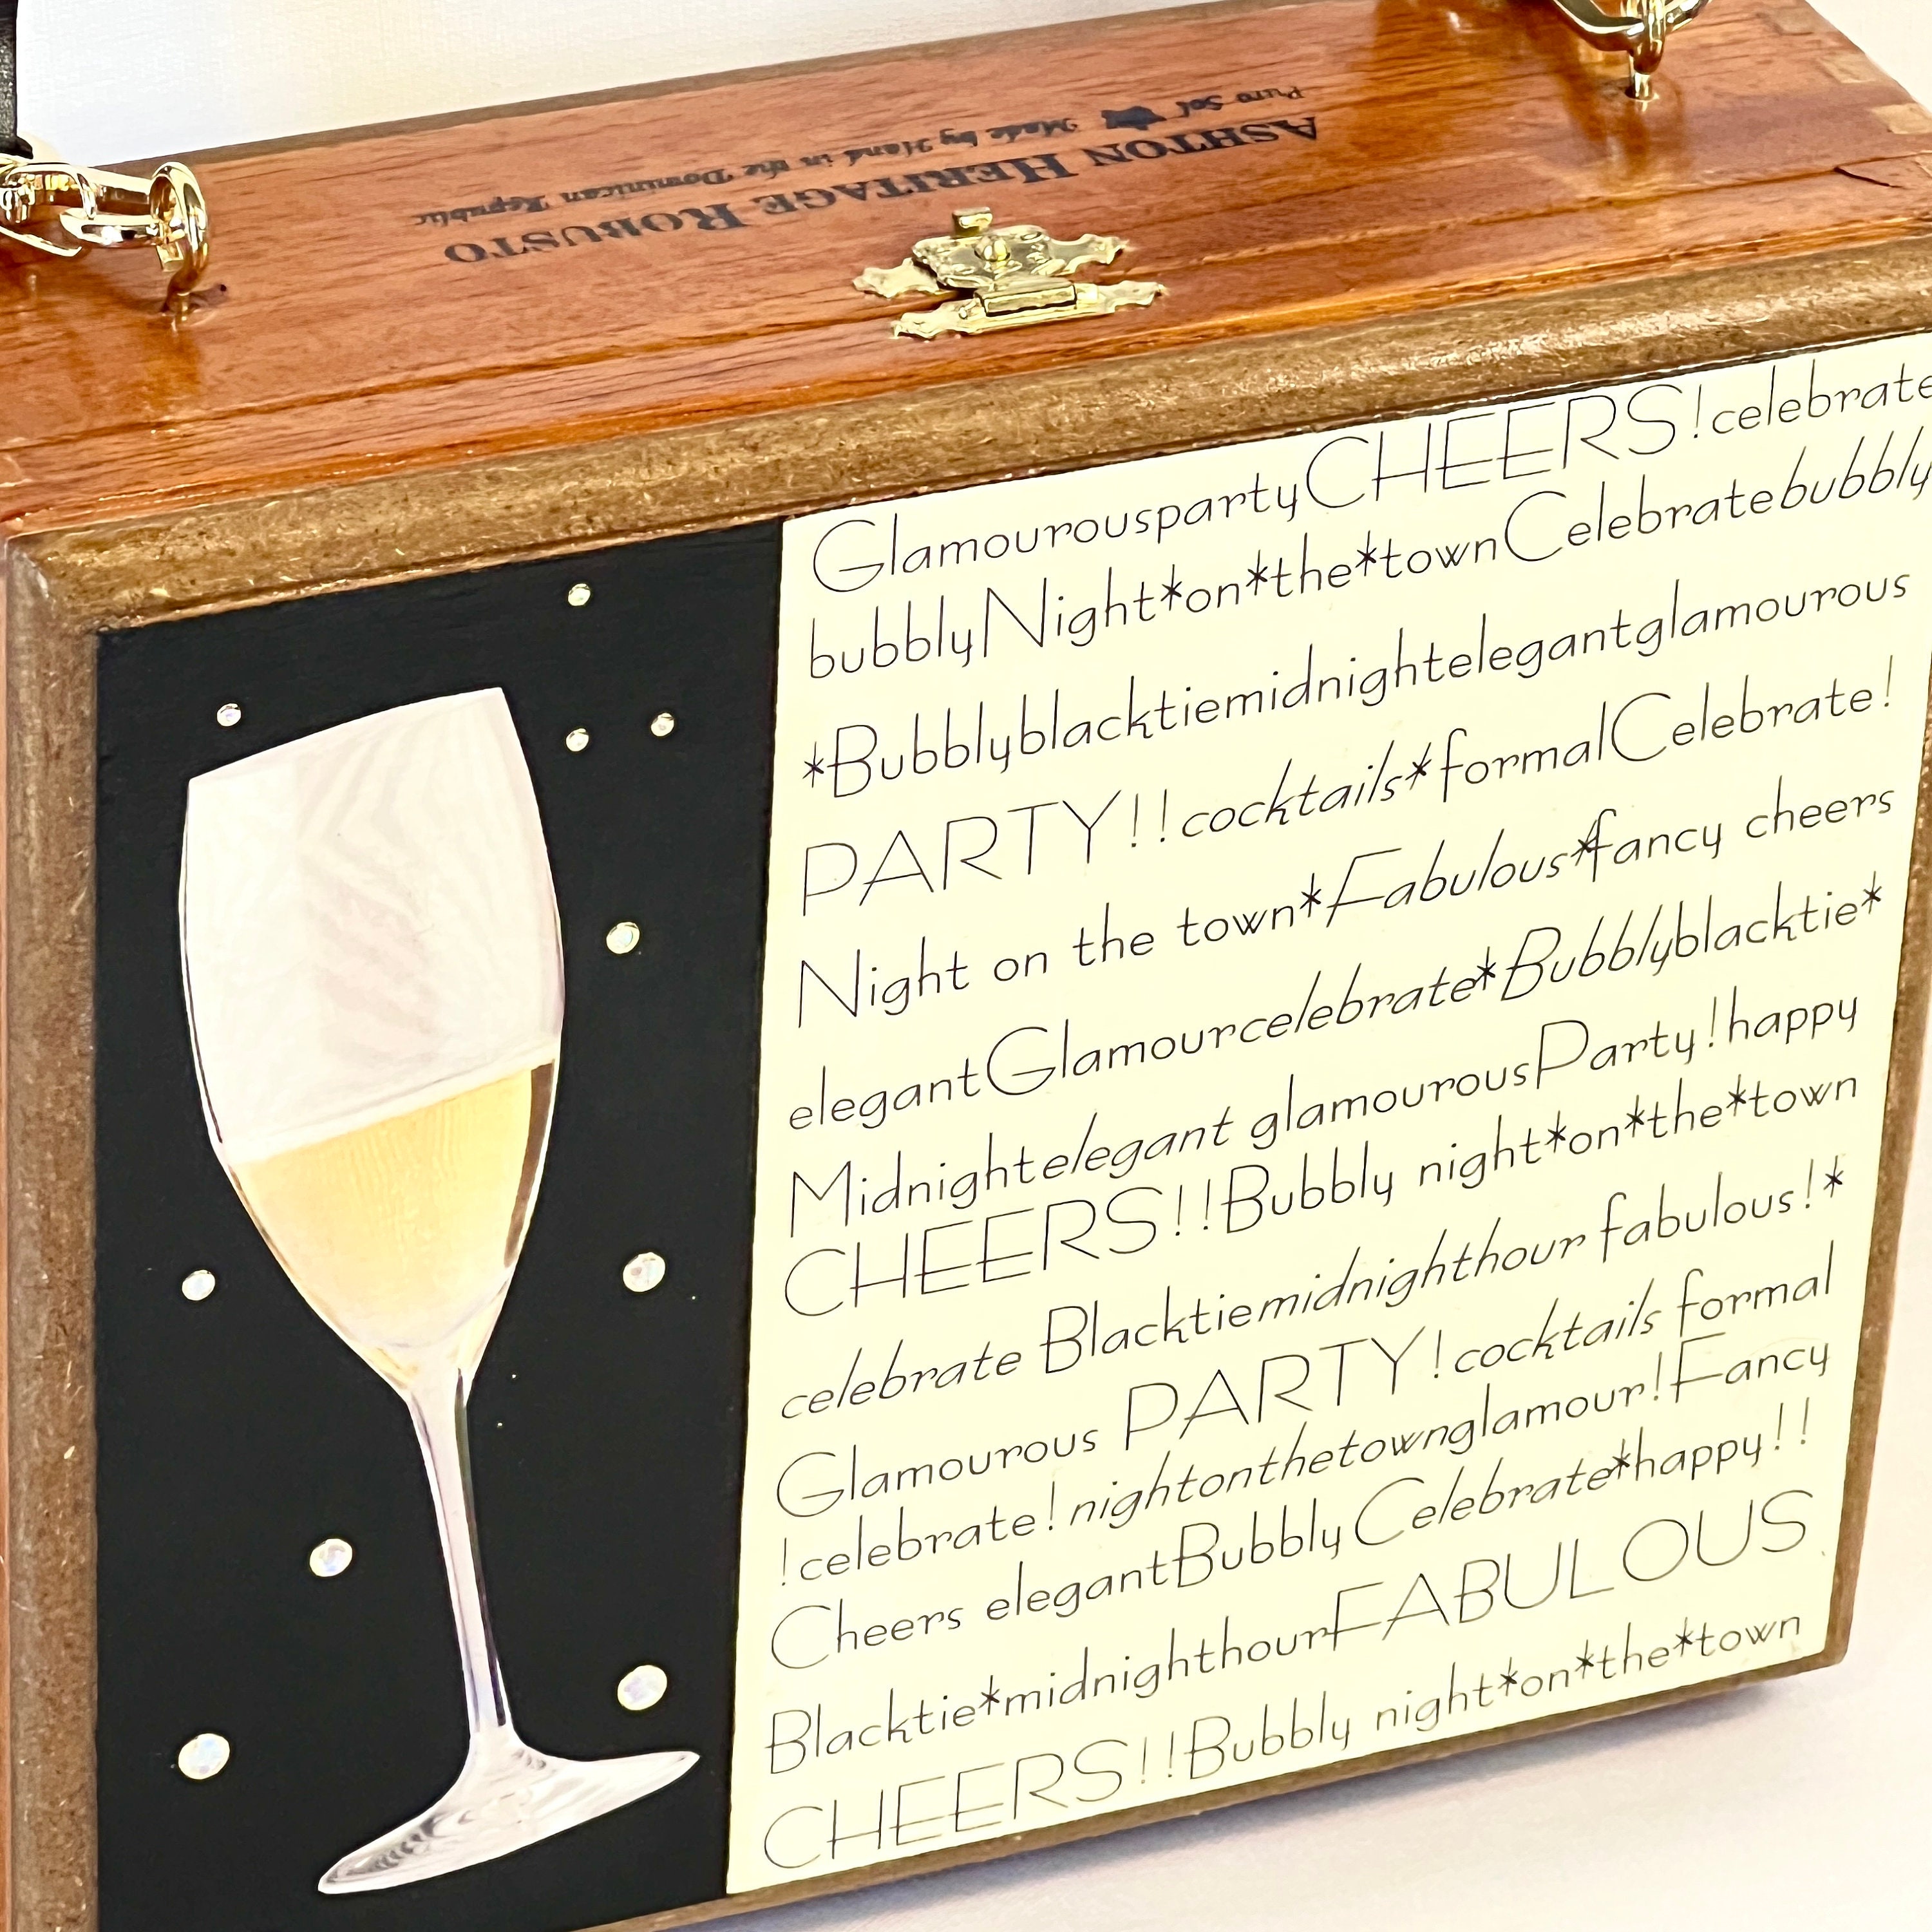 ASHTON HERITAGE ROBUSTO
Puro Sol Made by Hand in the Dominican Republic
GlamourouspartyCHEERS!celebrate
bubblyNight*on*the*townCelebratebubbly
*Bubblyblacktiemidnightelegantglamourous
PARTY!!cocktails*formalCelebrate!
Night on the town*Fabulous*fancy cheers
elegantGlamourcelebrate*Bubblyblacktie*
Midnightelegant glamourousParty!happy
CHEERS!!Bubbly night*on*the*town
celebrate Blacktiemidnighthour fabulous!*
Glamourous PARTY!cocktails formal
!celebrate!nightonthetownglamour!Fancy
Cheers elegantBubblyCelebrate*happy!!
Blacktie*midnighthourFABULOUS
CHEERS!!Bubbly night*on*the*town